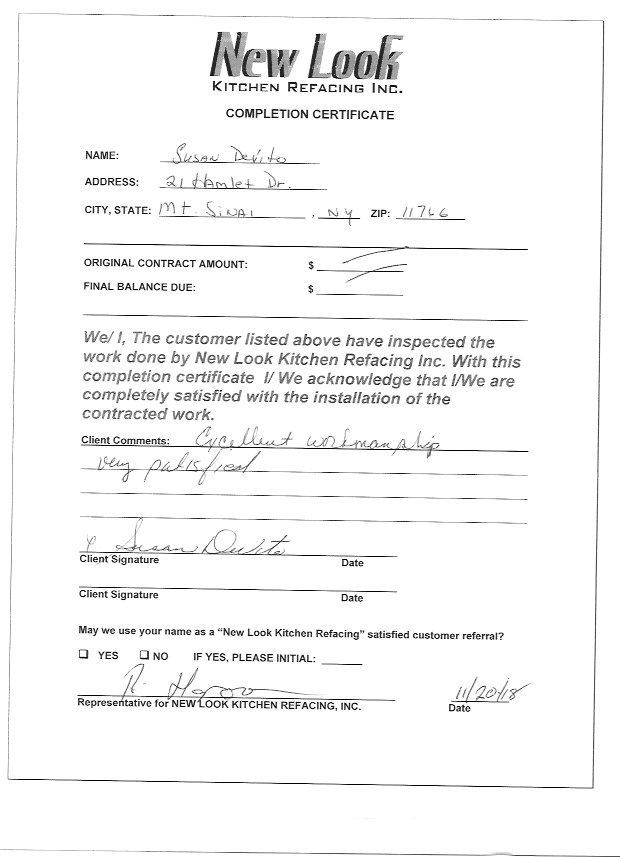 New Look
KITCHEN REFACING INC.
COMPLETION CERTIFICATE
NAME: Susan DeVito
ADDRESS: 21 Hamlet Dr.
CITY, STATE: Mt. Sinai, NY ZIP: 11766
ORIGINAL CONTRACT AMOUNT: $
FINAL BALANCE DUE: $
We/ I, The customer listed above have inspected the
work done by New Look Kitchen Refacing Inc. With this
completion certificate I/ We acknowledge that I/We are
completely satisfied with the installation of the
contracted work.
Client Comments: Excellent workmanship
very satisfied
x Susan DeVito
Client Signature Date
Client Signature Date
May we use your name as a "New Look Kitchen Refacing" satisfied customer referral?
YES NO IF YES, PLEASE INITIAL:
R. 11/20/18
Representative for NEW LOOK KITCHEN REFACING, INC. Date